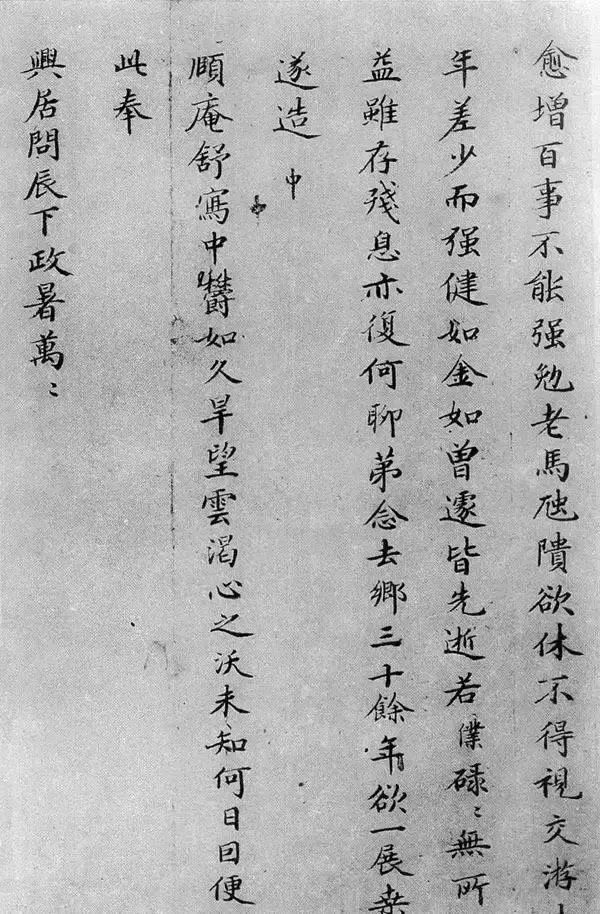 愈增百事不能强勉老馬虺隤欲休不得視交游中
年差少而强健如金如曾遽皆先逝若僕碌〻無所
益雖存殘息亦復何聊第念去鄉三十餘年欲一展桒
遂造中
頤庵舒寫中欝如久旱望雲渴心之沃未知何日因便
此奉
興居問辰下政暑萬〻